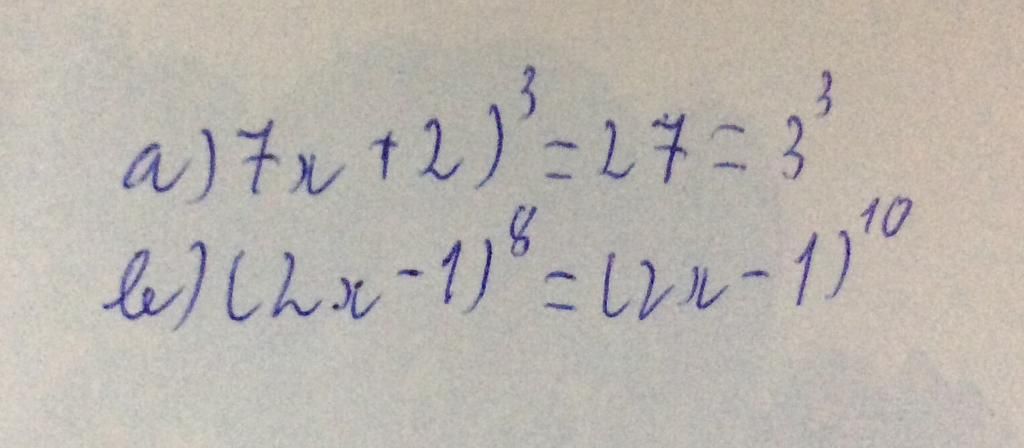 a) 7x + 2)³ = 27 = 3³
b) (2x - 1)⁸ = (2x - 1)¹⁰